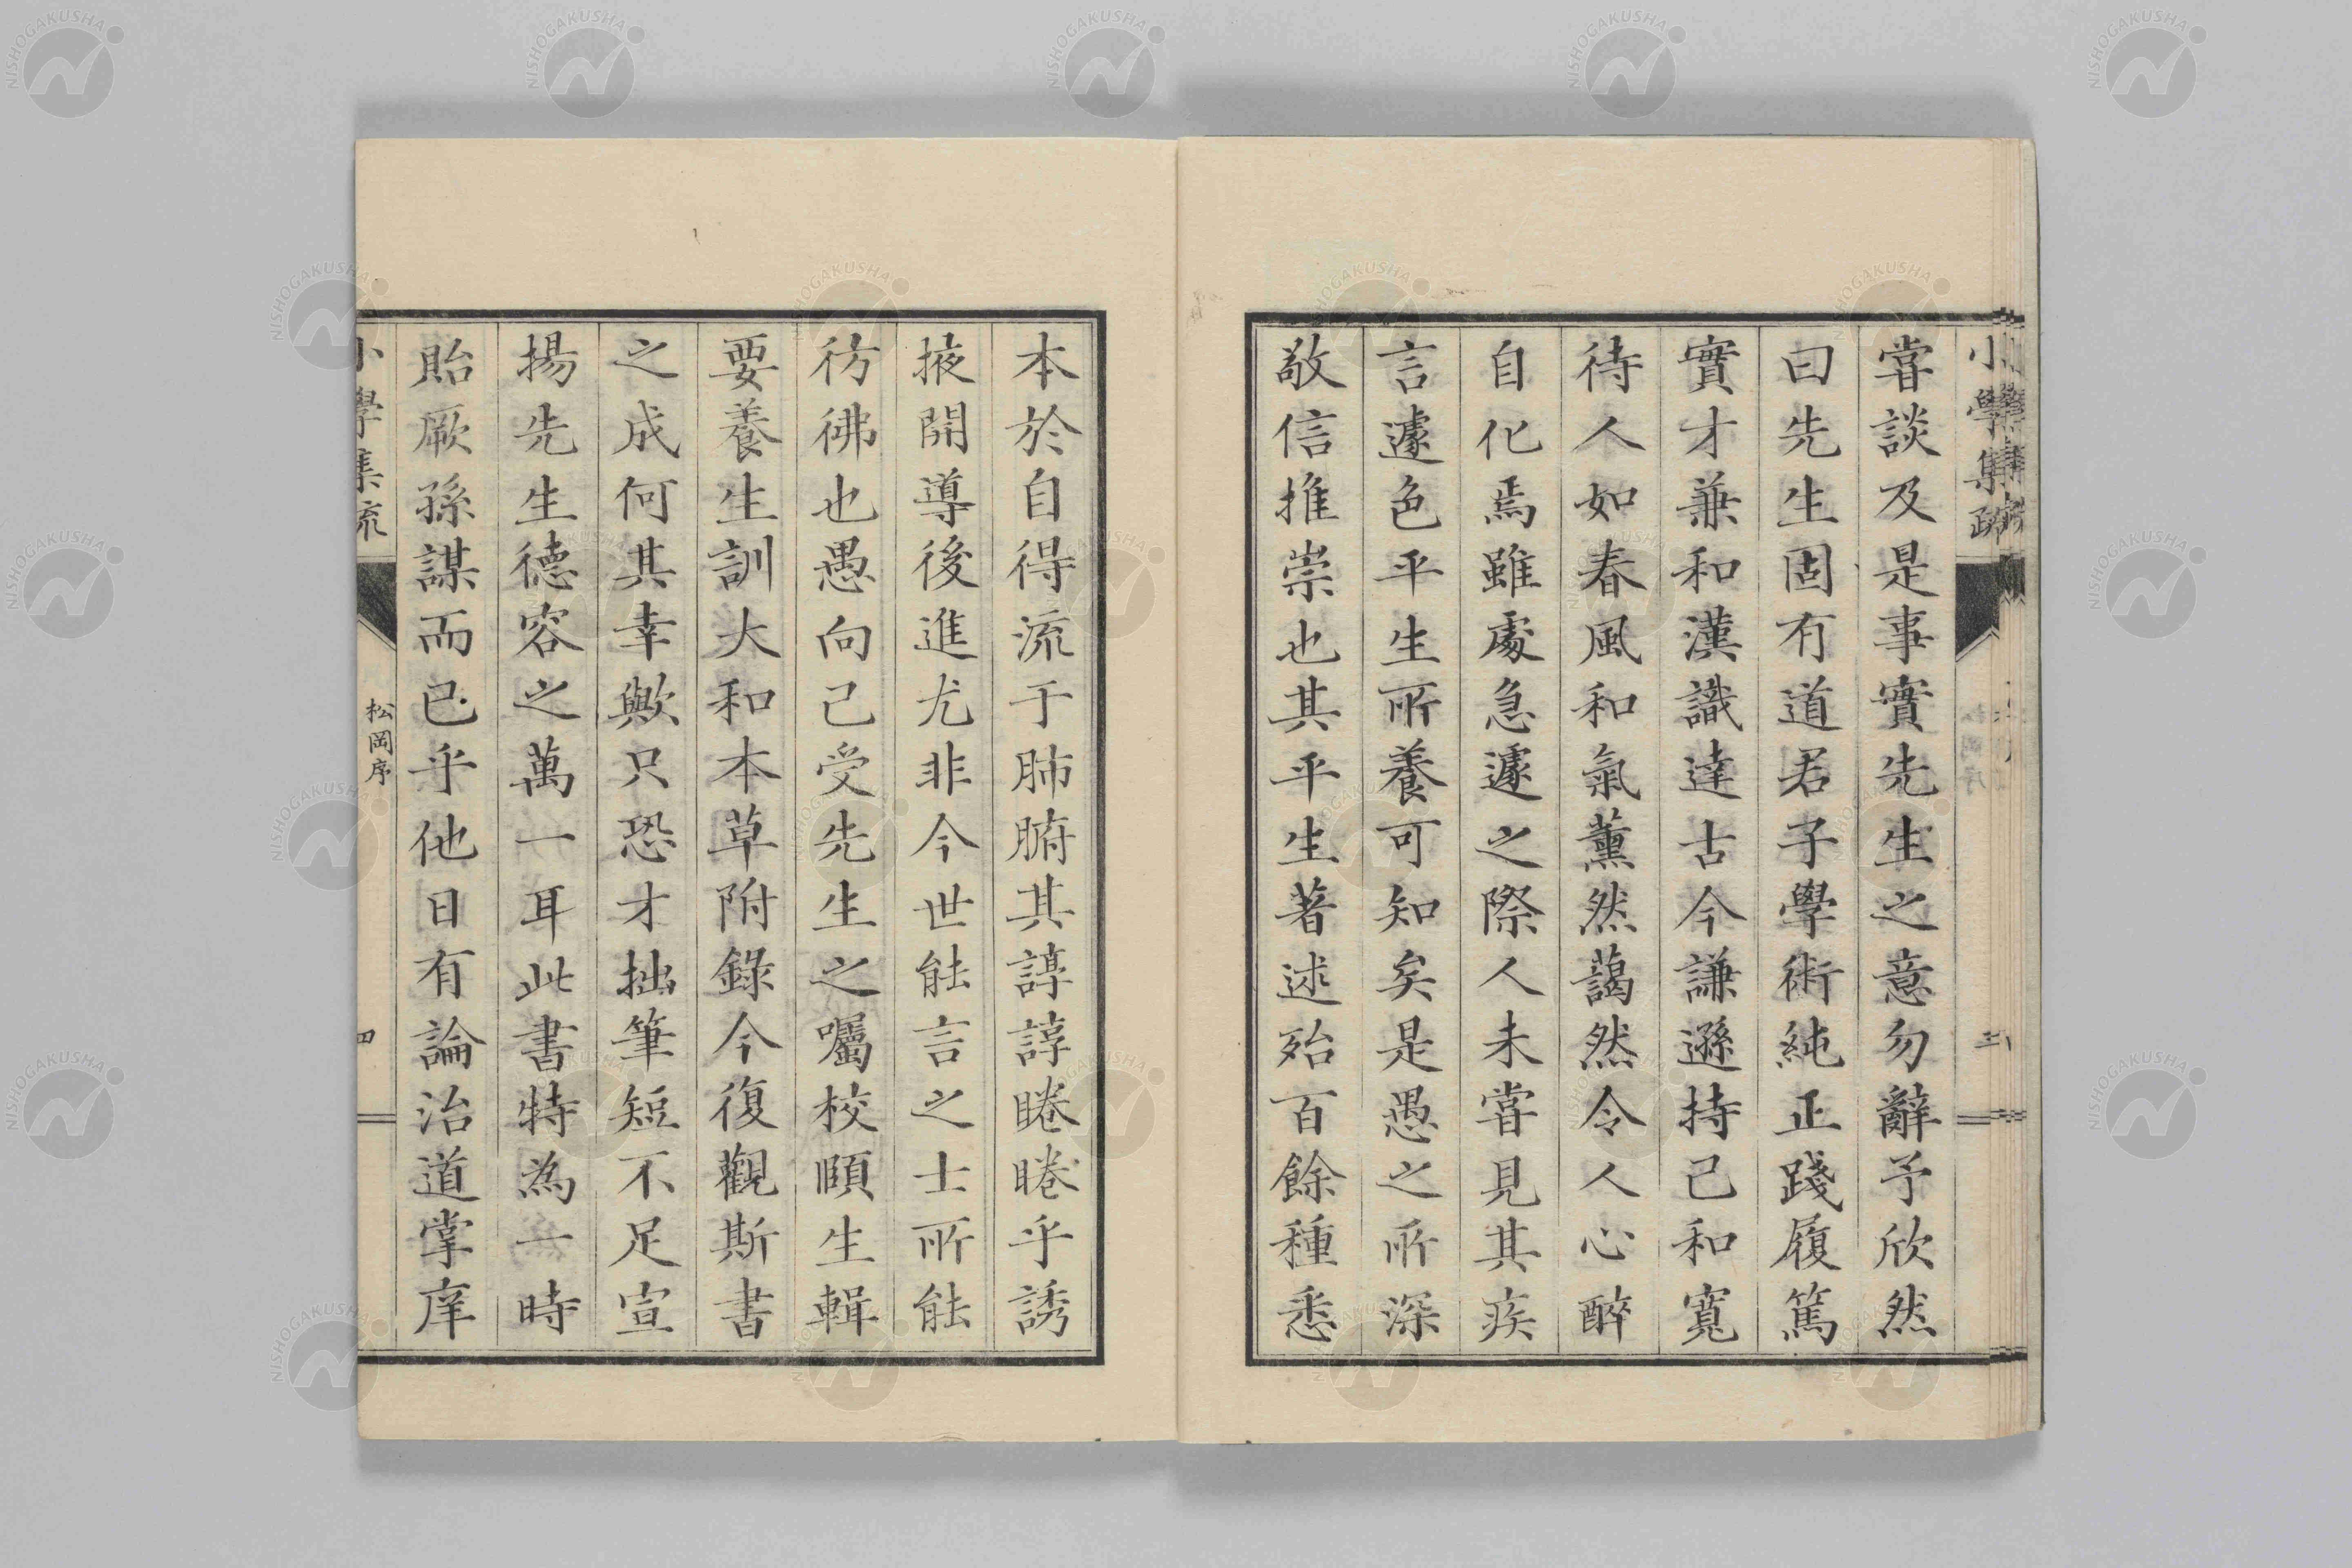 嘗談及是事實先生之意勿辭予欣然
曰先生固有道君子學術純正踐履篤
實才兼和漢識達古今謙遜持己和寬
待人如春風和氣薰然藹然令人心醉
自化焉雖處急遽之際人未嘗見其疾
言遽色平生所養可知矣是愚之所深
敬信推崇也其平生著述殆百餘種悉
本於自得流于肺腑其諄諄睠睠乎誘
掖開導後進尤非今世能言之士所能
彷彿也愚向己受先生之囑校頤生輯
要養生訓大和本草附錄今復觀斯書
之成何其幸歟只恐才拙筆短不足宣
揚先生德容之萬一耳此書特為一時
貽厥孫謀而已乎他日有論治道掌庠
小學集疏
松岡序
四
NISHOGAKUSHA